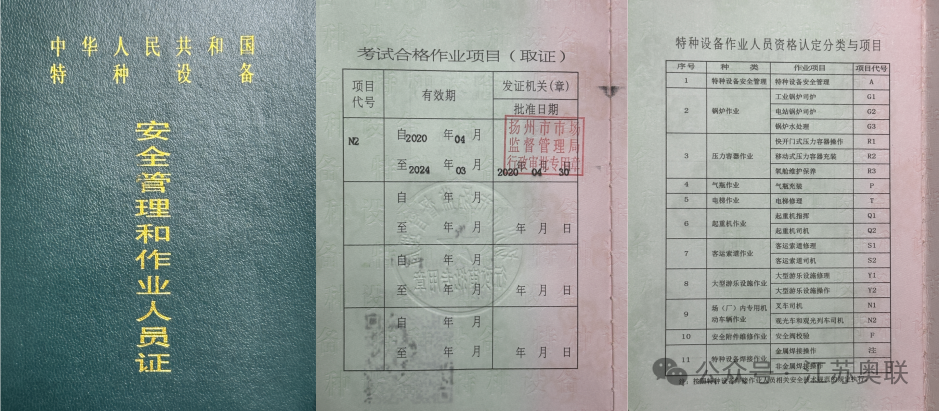 中华人民共和国
特种设备
安全管理和作业人员证
考试合格作业项目（取证）
项目代号 有效期 发证机关(章)
批准日期
N2 自2020年04月
扬州市市场
监督管理局
行政审批专用章
至2024年03月 2020年04月30日
自 年 月
至 年 月 年 月 日
自 年 月
至 年 月 年 月 日
自 年 月
至 年 月 年 月 日
特种设备作业人员资格认定分类与项目
序号 种类 作业项目 项目代号
1 特种设备安全管理 特种设备安全管理 A
2 锅炉作业 工业锅炉司炉 G1
电站锅炉司炉 G2
锅炉水处理 G3
3 压力容器作业 快开门式压力容器操作 R1
移动式压力容器充装 R2
氧舱维护保养 R3
4 气瓶作业 气瓶充装 P
5 电梯作业 电梯修理 T
6 起重机作业 起重机指挥 Q1
起重机司机 Q2
7 客运索道作业 客运索道修理 S1
客运索道司机 S2
8 大型游乐设施作业 大型游乐设施修理 Y1
大型游乐设施操作 Y2
9 场（厂）内专用机动车辆作业 叉车司机 N1
观光车和观光列车司机 N2
10 安全附件维修作业 安全阀校验 F
11 特种设备焊接作业 金属焊接操作 注
非金属焊接操作
公众号·江苏奥联